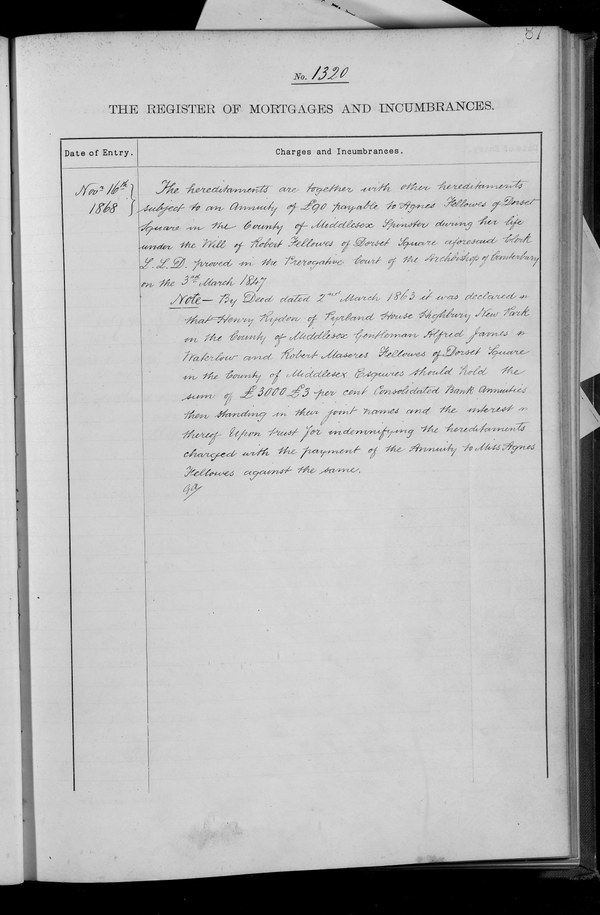 81
No. 1320
THE REGISTER OF MORTGAGES AND INCUMBRANCES.
Date of Entry.
Charges and Incumbrances.
Novr 16th
1868
The hereditaments are together with other hereditaments
subject to an Annuity of £90 payable to Agnes Fellowes of Dorset
Square in the County of Middlesex Spinster during her life
under the Will of Robert Fellowes of Dorset Square aforesaid Clerk
L. L. D. proved in the Prerogative Court of the Archbishop of Canterbury
on the 3rd March 1847
Note— By Deed dated 2nd March 1863 it was declared
that Henry Rydon of Pyrland House Highbury New Park
in the County of Middlesex Gentleman Alfred James
Waterlow and Robert Maseres Fellowes of Dorset Square
in the County of Middlesex Esquires should hold the
sum of £3000 £3 per cent Consolidated Bank Annuities
then standing in their joint names and the interest
thereof Upon trust for indemnifying the hereditaments
charged with the payment of the Annuity to Miss Agnes
Fellowes against the same.